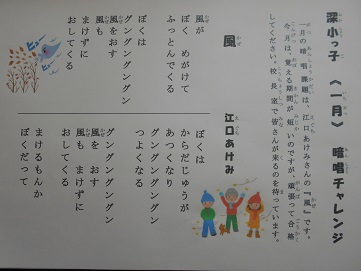 深小っ子 〈一月〉 暗唱チャレンジ
一月の暗唱課題は、江口あけみさんの『風』です。
今月は、覚える期間が短いのですが、頑張って合格
してください。校長室で皆さんが来るのを待っています。
風
江口あけみ
風が
ぼく めがけて
ふっとんでくる
ぼくは
風をおす
グングングングン
風も
まけずに
おしてくる
ぼくは
からだじゅうが
あつくなり
つよくなる
グングングングン
グングングングン
風を おす
風も まけずに
おしてくる
まけるもんか
ぼくだって
ヒュー
ヒュー